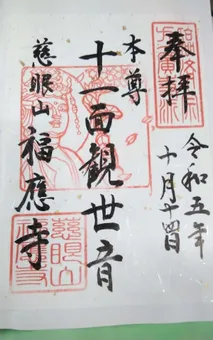 奉拝
令和五年
十月十四日
本尊
十一面観世音
慈眼山 福應寺